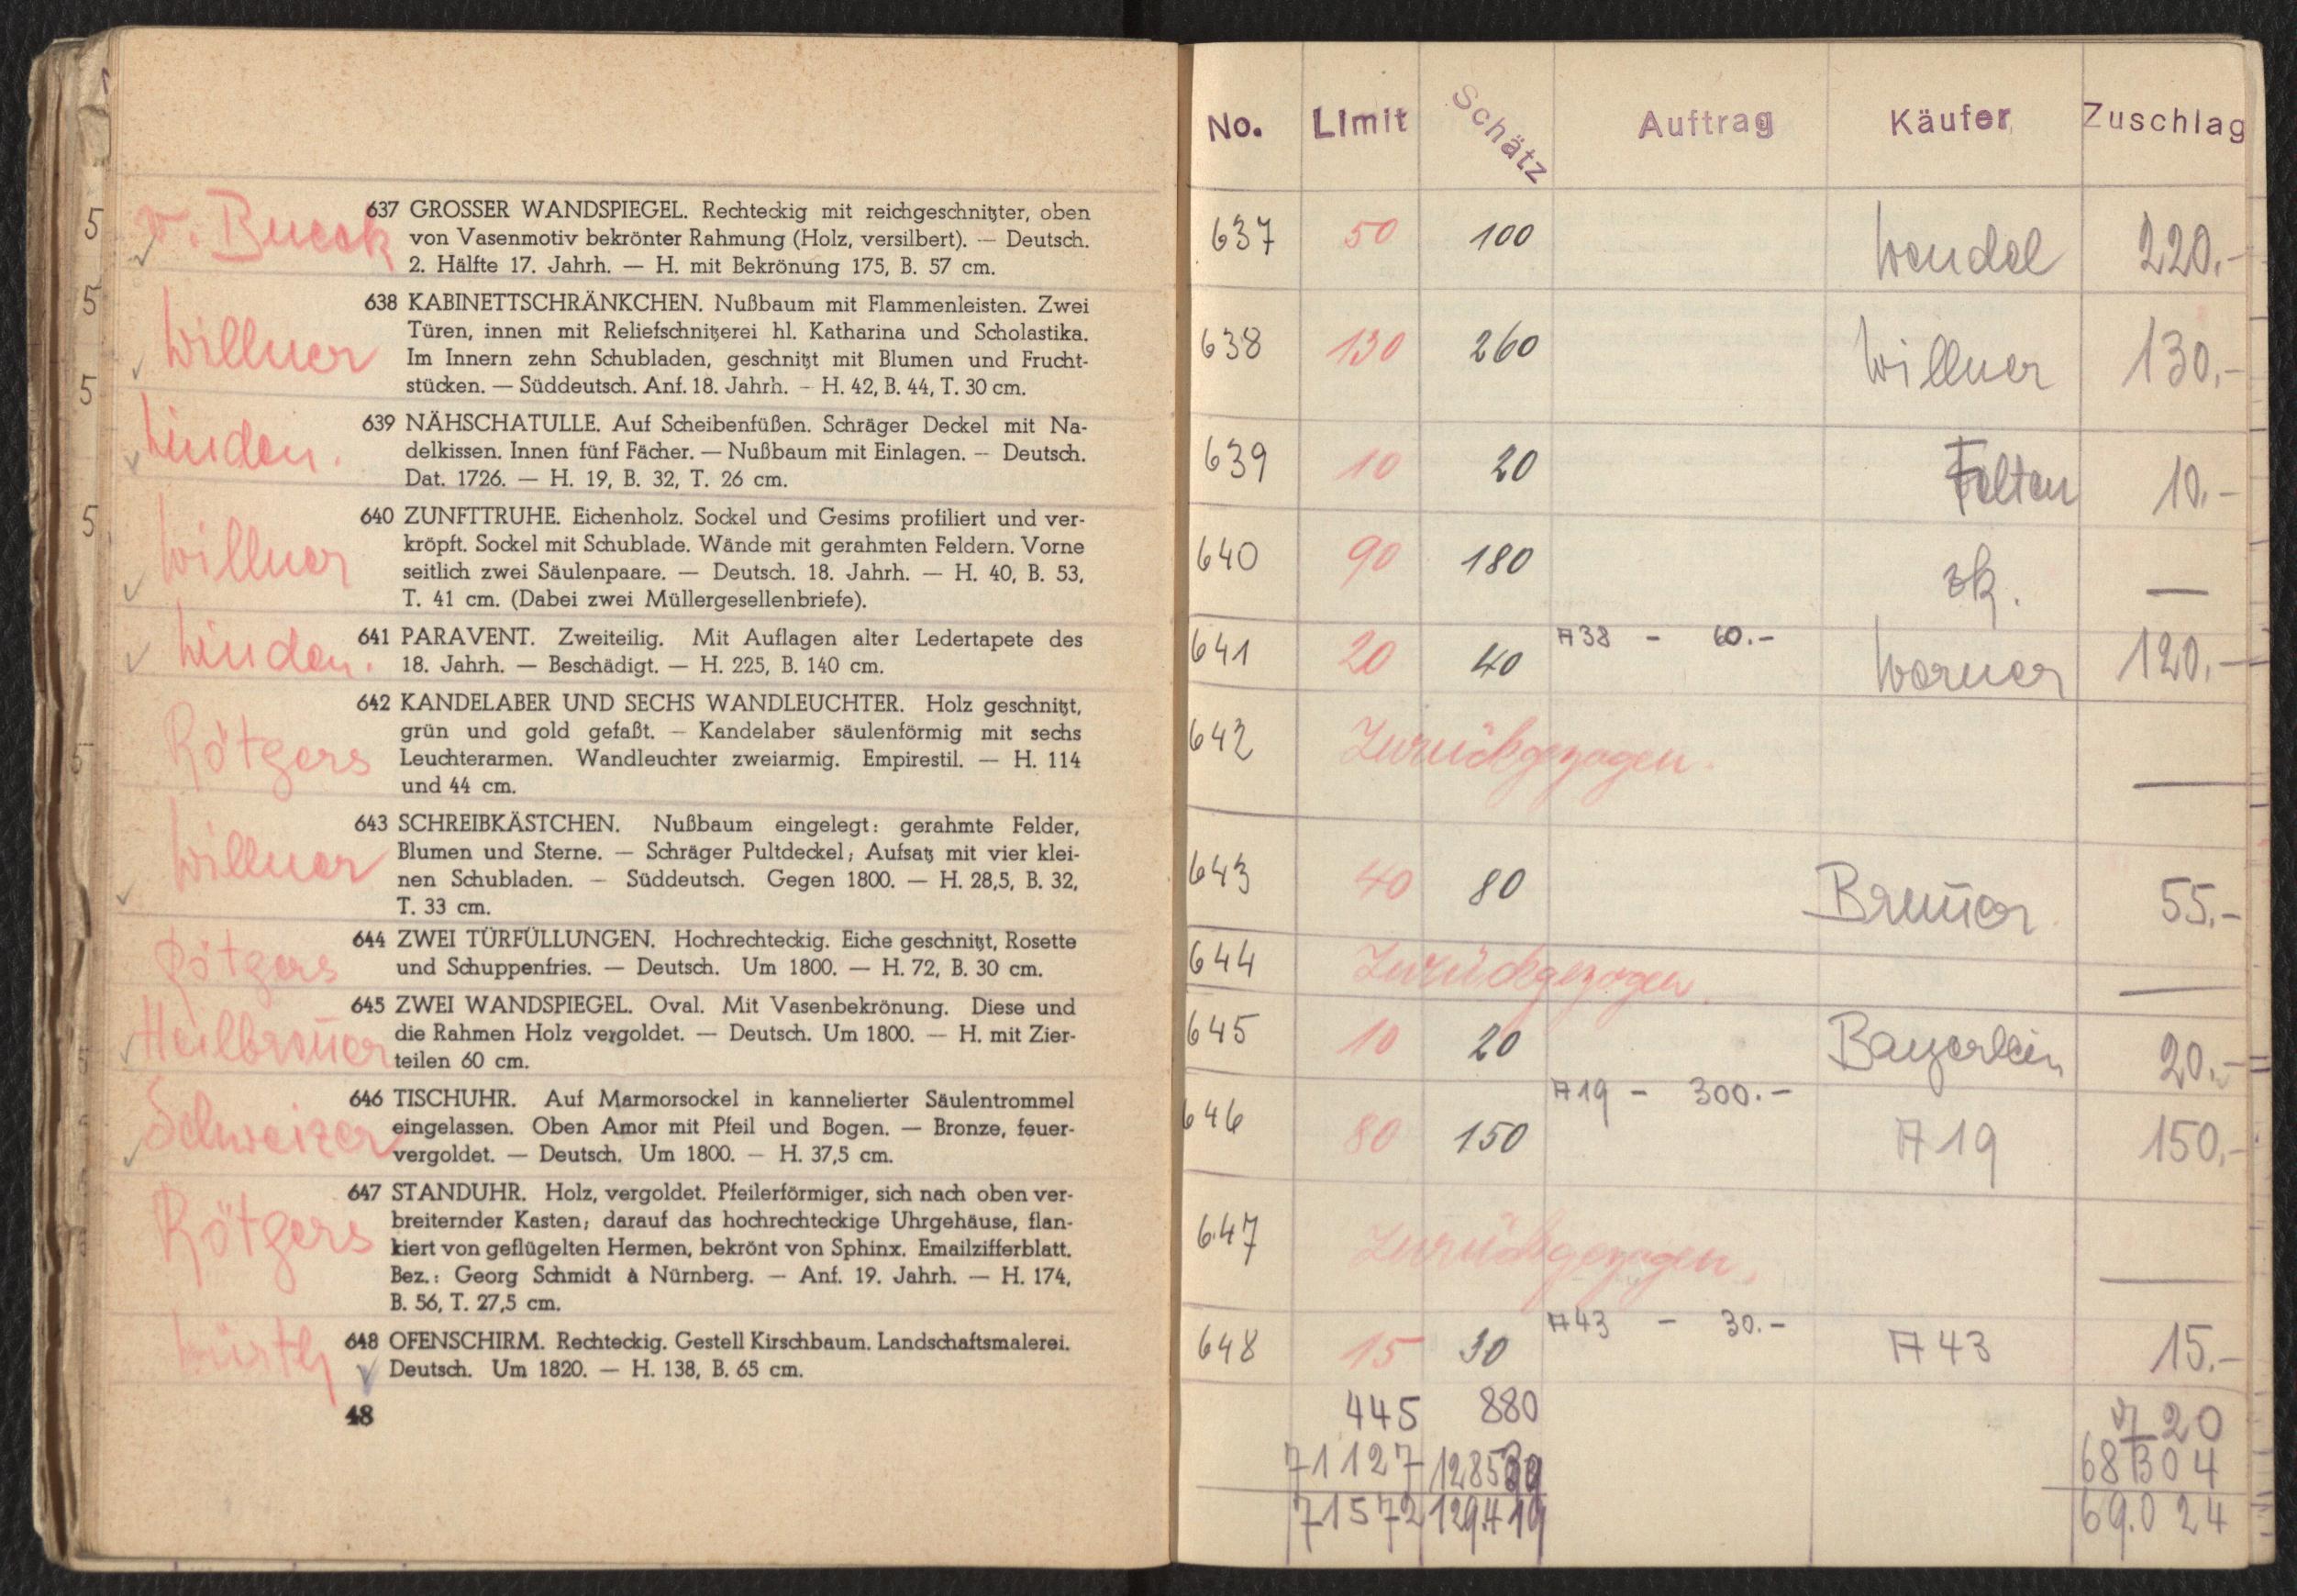 5
v. Bueck
637 GROSSER WANDSPIEGEL. Rechteckig mit reichgeschnitzter, oben
von Vasenmotiv bekrönter Rahmung (Holz, versilbert). — Deutsch.
2. Hälfte 17. Jahrh. — H. mit Bekrönung 175, B. 57 cm.
5
Willner
638 KABINETTSCHRÄNKCHEN. Nußbaum mit Flammenleisten. Zwei
Türen, innen mit Reliefschnitzerei hl. Katharina und Scholastika.
Im Innern zehn Schubladen, geschnitzt mit Blumen und Frucht-
stücken. — Süddeutsch. Anf. 18. Jahrh. — H. 42, B. 44, T. 30 cm.
5
Linden.
639 NÄHSCHATULLE. Auf Scheibenfüßen. Schräger Deckel mit Na-
delkissen. Innen fünf Fächer. — Nußbaum mit Einlagen. — Deutsch.
Dat. 1726. — H. 19, B. 32, T. 26 cm.
5
Willner
640 ZUNFTTRUHE. Eichenholz. Sockel und Gesims profiliert und ver-
kröpft. Sockel mit Schublade. Wände mit gerahmten Feldern. Vorne
seitlich zwei Säulenpaare. — Deutsch. 18. Jahrh. — H. 40, B. 53,
T. 41 cm. (Dabei zwei Müllergesellenbriefe).
Linden.
641 PARAVENT. Zweiteilig. Mit Auflagen alter Ledertapete des
18. Jahrh. — Beschädigt. — H. 225, B. 140 cm.
Rötgers
642 KANDELABER UND SECHS WANDLEUCHTER. Holz geschnitzt,
grün und gold gefaßt. — Kandelaber säulenförmig mit sechs
Leuchterarmen. Wandleuchter zweiarmig. Empirestil. — H. 114
und 44 cm.
Willner
643 SCHREIBKÄSTCHEN. Nußbaum eingelegt: gerahmte Felder,
Blumen und Sterne. — Schräger Pultdeckel; Aufsatz mit vier klei-
nen Schubladen. — Süddeutsch. Gegen 1800. — H. 28,5, B. 32,
T. 33 cm.
Rötgers
644 ZWEI TÜRFÜLLUNGEN. Hochrechteckig. Eiche geschnitzt, Rosette
und Schuppenfries. — Deutsch. Um 1800. — H. 72, B. 30 cm.
Heilbron̄er
645 ZWEI WANDSPIEGEL. Oval. Mit Vasenbekrönung. Diese und
die Rahmen Holz vergoldet. — Deutsch. Um 1800. — H. mit Zier-
teilen 60 cm.
Schweizer
646 TISCHUHR. Auf Marmorsockel in kannelierter Säulentrommel
eingelassen. Oben Amor mit Pfeil und Bogen. — Bronze, feuer-
vergoldet. — Deutsch. Um 1800. — H. 37,5 cm.
Rötgers
647 STANDUHR. Holz, vergoldet. Pfeilerförmiger, sich nach oben ver-
breiternder Kasten; darauf das hochrechteckige Uhrgehäuse, flan-
kiert von geflügelten Hermen, bekrönt von Sphinx. Emailzifferblatt.
Bez.: Georg Schmidt à Nürnberg. — Anf. 19. Jahrh. — H. 174,
B. 56, T. 27,5 cm.
Würth
648 OFENSCHIRM. Rechteckig. Gestell Kirschbaum. Landschaftsmalerei.
Deutsch. Um 1820. — H. 138, B. 65 cm.
48
No. Limit Schätz Auftrag Käufer Zuschlag
637 50 100 Wendel 220.-
638 130 260 Willner 130.-
639 10 20 Felten 10.-
640 90 180 zk. —
641 20 40 A38 - 60.- Werner 120.-
642 Zurückgezogen. —
643 40 80 Brun̄er 55.-
644 Zurückgezogen. —
645 10 20 Bayerlein 20.-
646 80 150 A19 - 300.- A19 150.-
647 Zurückgezogen. —
648 15 30 A43 - 30.- A43 15.-
445 880 720
71127 68304
71572 129.419 69.024